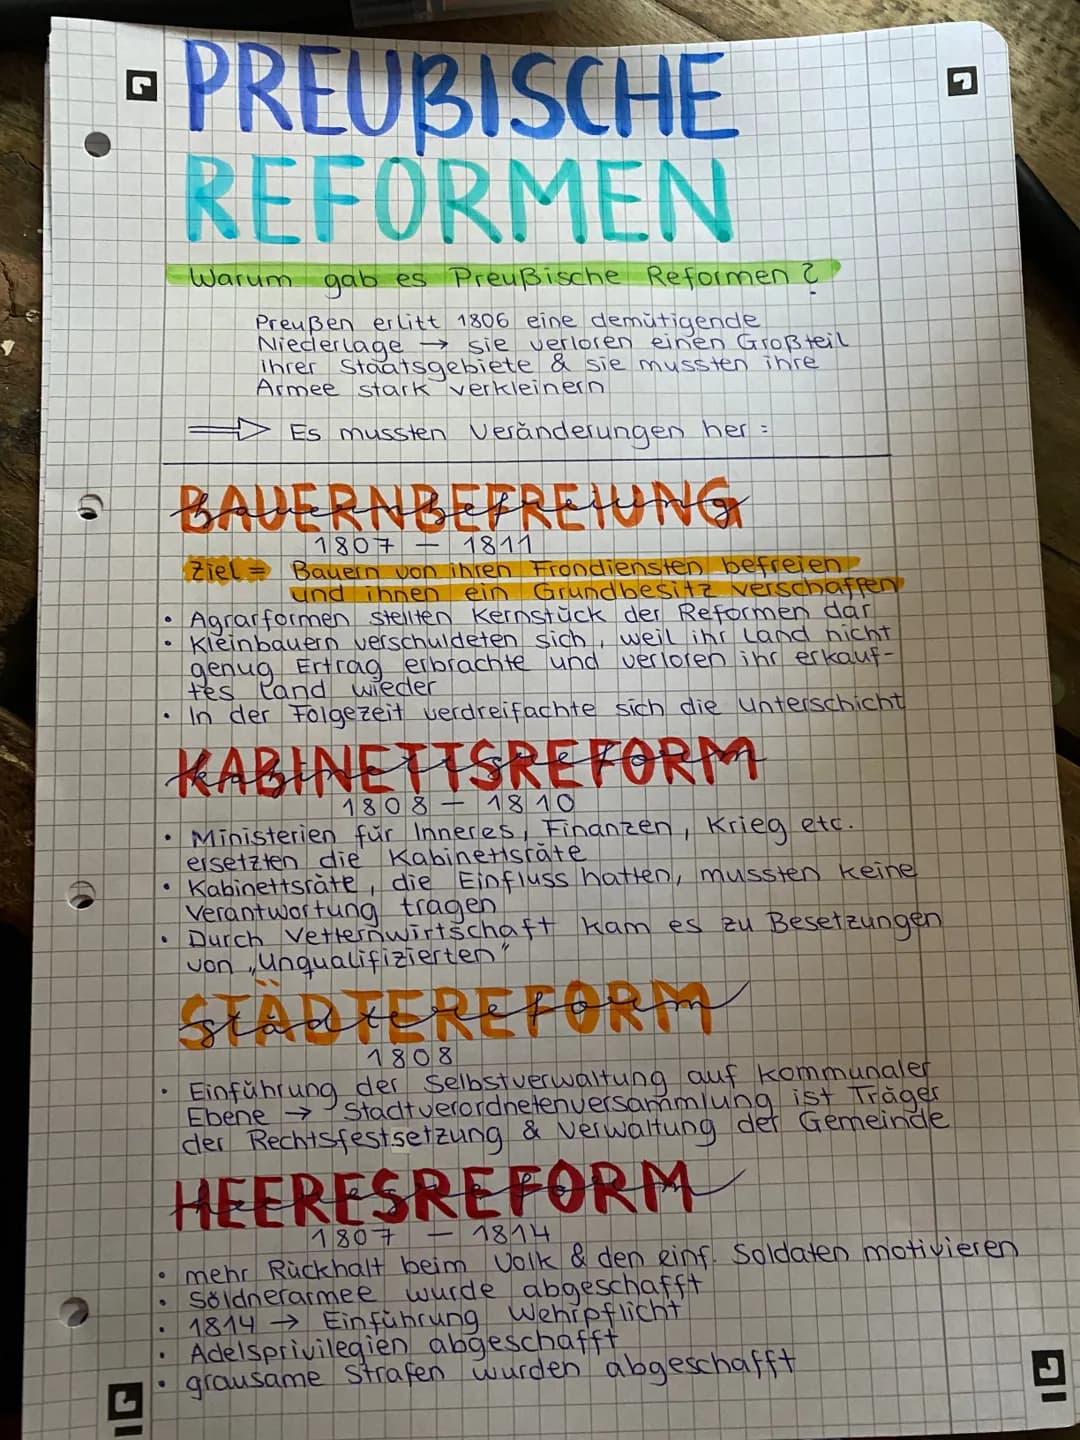 PREUßISCHE
REFORMEN
Warum gab es Preußische Reformen?
Preußen erlitt 1806 eine demütigende
Niederlage → sie verloren einen Großteil
ihrer Staatsgebiete & sie mussten ihre
Armee stark verkleinern
⟹ Es mussten Veränderungen her:
BAUERNBEFREIUNG
Bauernbefreiung
1807 – 1811
Ziel = Bauern von ihren Frondiensten befreien
und ihnen ein Grundbesitz verschaffen
• Agrarformen stellten Kernstück der Reformen dar
• Kleinbauern verschuldeten sich, weil ihr Land nicht
genug Ertrag erbrachte und verloren ihr erkauf-
tes Land wieder
• In der Folgezeit verdreifachte sich die Unterschicht
KABINETTSREFORM
Kabinettsreform
1808 – 1810
• Ministerien für Inneres, Finanzen, Krieg etc.
ersetzten die Kabinettsräte
• Kabinettsräte, die Einfluss hatten, mussten keine
Verantwortung tragen
• Durch Vetternwirtschaft kam es zu Besetzungen
von „Unqualifizierten"
STÄDTEREFORM
Städtereform
1808
• Einführung der Selbstverwaltung auf kommunaler
Ebene → Stadtverordnetenversammlung ist Träger
der Rechtsfestsetzung & Verwaltung der Gemeinde
HEERESREFORM
Heeresreform
1807 – 1814
• mehr Rückhalt beim Volk & den einf. Soldaten motivieren
• Söldnerarmee wurde abgeschafft
• 1814 → Einführung Wehrpflicht
• Adelsprivilegien abgeschafft
• grausame Strafen wurden abgeschafft